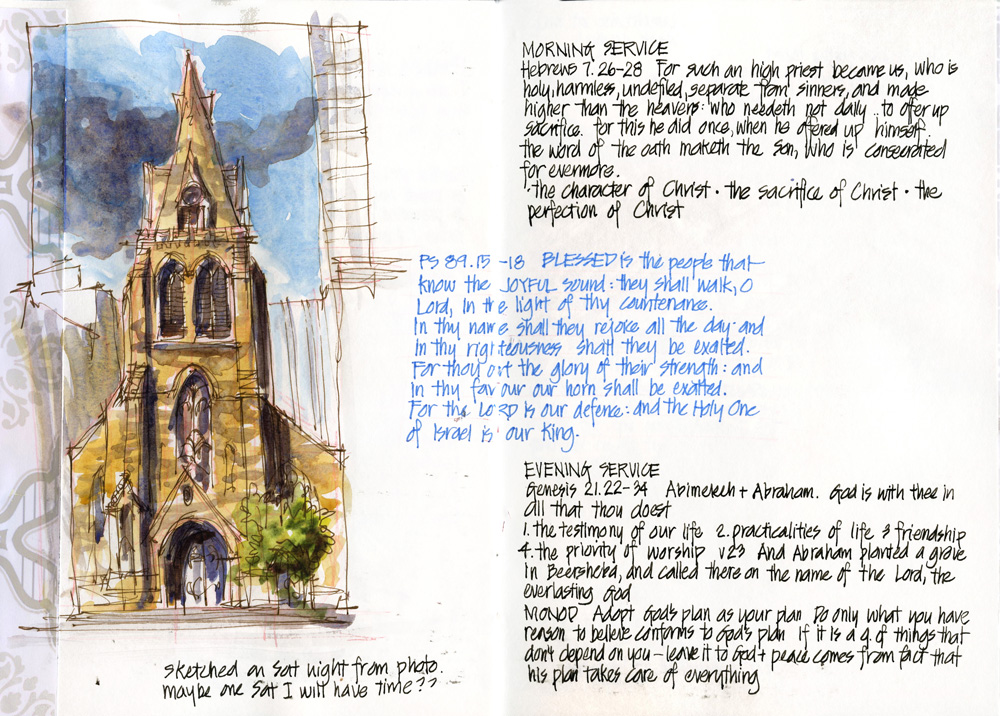 MORNING SERVICE
Hebrews 7.26-28 For such an high priest became us, who is
holy, harmless, undefiled, separate from sinners, and made
higher than the heavens: who needeth not daily .. to offer up
sacrifice. for this he did once, when he offered up himself.
the word of the oath maketh the Son, who is consecrated
for evermore.
· the character of Christ · the sacrifice of Christ · the
perfection of Christ
PS 89.15 -18 BLESSED is the people that
know the JOYFUL sound: they shall walk, O
Lord, in the light of thy countenance.
In thy name shall they rejoice all the day: and
in thy righteousness shall they be exalted.
For thou art the glory of their strength: and
in thy favour our horn shall be exalted.
For the LORD is our defence: and the Holy One
of Israel is our King.
EVENING SERVICE
Genesis 21.22-34 Abimelech + Abraham. God is with thee in
all that thou doest
1. the testimony of our life 2. practicalities of life 3 friendship
4. the priority of worship v23 And Abraham planted a grove
in Beersheba, and called there on the name of the Lord, the
everlasting God
MONOD Adopt God's plan as your plan Do only what you have
reason to believe conforms to God's plan If it is a q. of things that
don't depend on you - leave it to God + peace comes from fact that
his plan takes care of everything
sketched on sat night from photo.
maybe one sat I will have time??